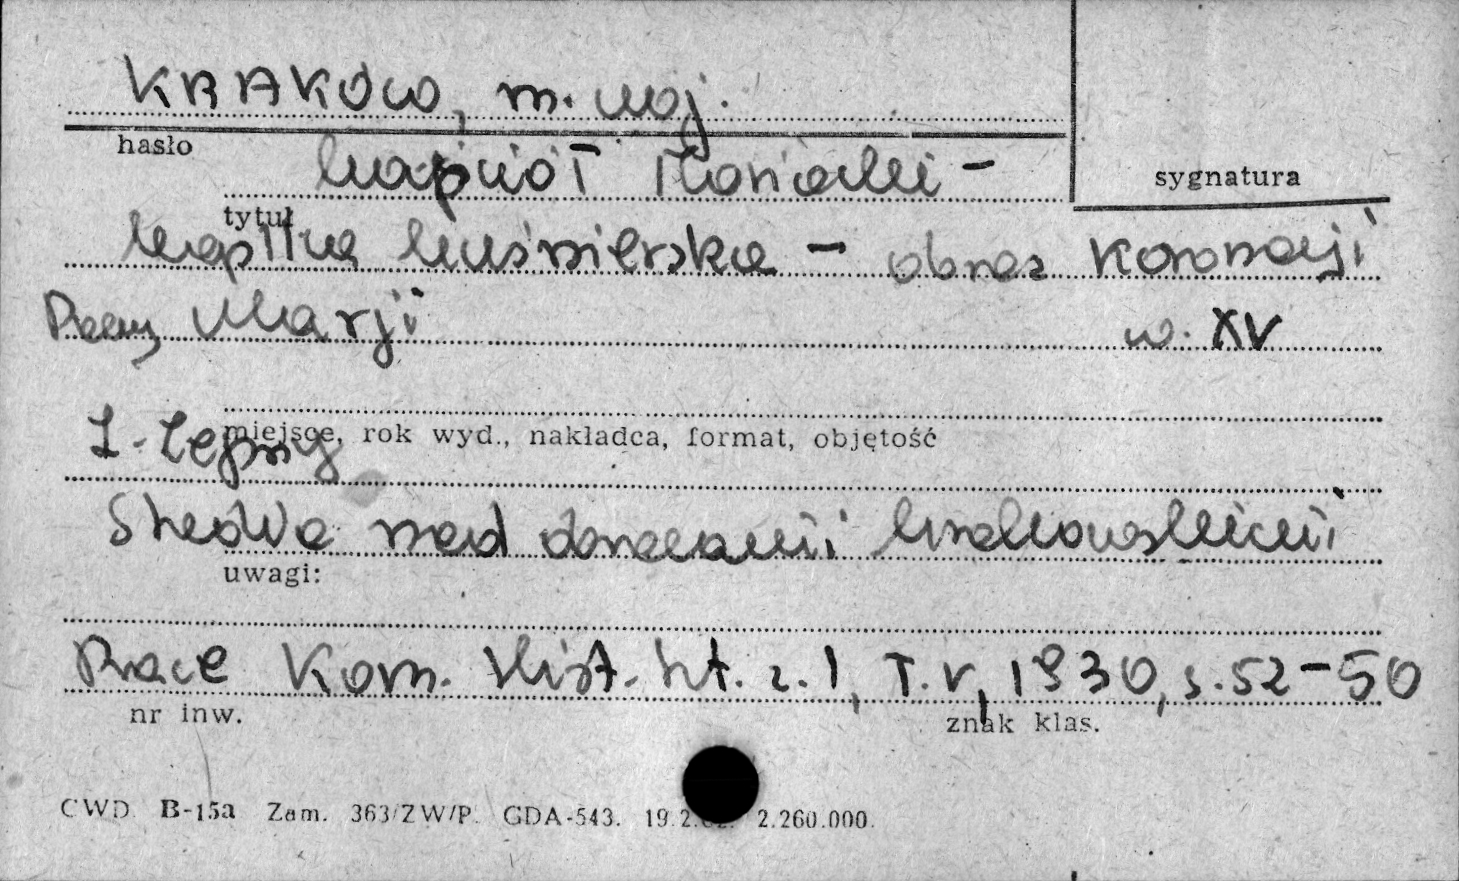 KRAKÓW, m. woj.
hasło
kościół Mariacki –
sygnatura
tytuł
kaplica kuśnierska – obraz Koronacji
Panny Marji w. XV
miejsce, rok wyd., nakładca, format, objętość
L. Lepszy
Studia nad obrazami krakowskimi
uwagi:
Prace Kom. Hist. szt. z. 1, T. V, 1930, s. 52–50
nr inw.
znak klas.
CWD B-15a Zam. 363/ZW/P. GDA-543. 19.2. 2.260.000.